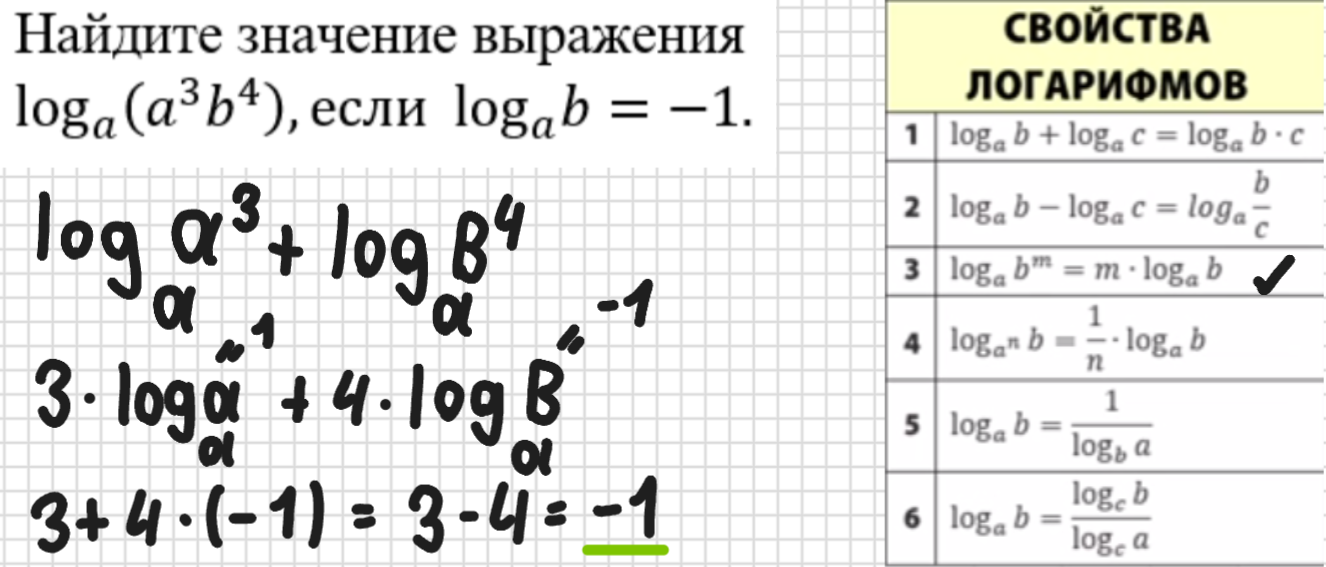 Найдите значение выражения
logₐ(a³b⁴), если logₐb = −1.
logₐ a³ + logₐ B⁴
3 · logₐ a " 1 + 4 · logₐ B " -1
3 + 4 · (-1) = 3 - 4 = -1
СВОЙСТВА
ЛОГАРИФМОВ
1 logₐ b + logₐ c = logₐ b · c
2 logₐ b − logₐ c = logₐ b/c
3 logₐ bᵐ = m · logₐ b ✓
4 log_{aⁿ} b = 1/n · logₐ b
5 logₐ b = 1/log_b a
6 logₐ b = log_c b/log_c a